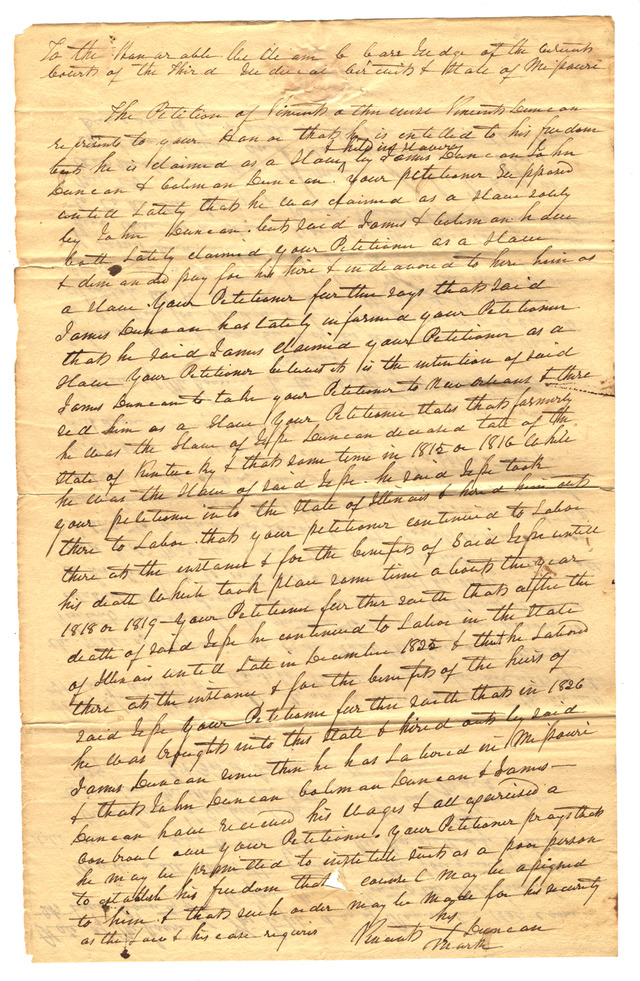 To the Honorable William C Carr Judge of the Circuit
Court of the third Judicial Circuit & State of Missouri
The Petition of Vincent otherwise Vincent Duncan
represents to your Honor that he is entitled to his freedom
& held in Slavery
but he is claimed as a Slave, by James Duncan John
Duncan & Coleman Duncan. your petitioner Supposed
untill Lately that he was claimed as a Slave solely
by John Duncan. but said James & Coleman have
both Lately claimed your Petitioner as a Slave
& demanded pay for his hire & indeavored to hire him as
a slave Your Petitioner further says that said
James Duncan has lately informed your Petitioner
that he said James claimed your Petitioner as a
Slave Your Petitioner believes it is the intention of said
James Duncan to take your Petitioner to New Orleans & there
sell him as a Slave Your Petitioner states that formerly
he was the Slave of Jesse Duncan deceased late of the
State of Kentucky & that some time in 1815 or 1816 While
he was the Slave of said Jesse. he said Jesse took
your petitioner into the State of Illinois & hired him out
there to Labor that your petitioner continued to Labor
there at the instance & for the benefit of Said Jesse untill
his death Which took place some time about the year
1818 or 1819 — Your Petitioner further saith that after the
death of said Jesse he continued to Labor in the State
of Illinois untill Late in December 1825 & that he Labored
there at the instance & for the benefit of the heirs of
said Jesse Your Petitioner further saith that in 1826
he was brought into this State & hired out by said
James Duncan since then he has Labored in Missouri
& that John Duncan Coleman Duncan & James —
Duncan have received his wages & all exercised a
controul over your Petitioner. Your Petitioner prays that
he may be permitted to institute suit as a poor person
to establish his freedom that counsel may be assigned
to him. & that such order may be made for his security
as the Law & his case requires
his
Vincent + Duncan
mark